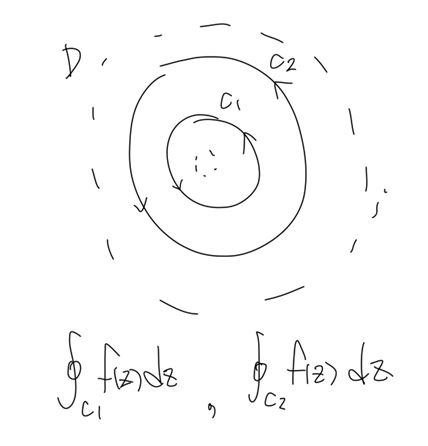 D
C₂
C₁
∮_{C₁} f(z)dz , ∮_{C₂} f(z)dz